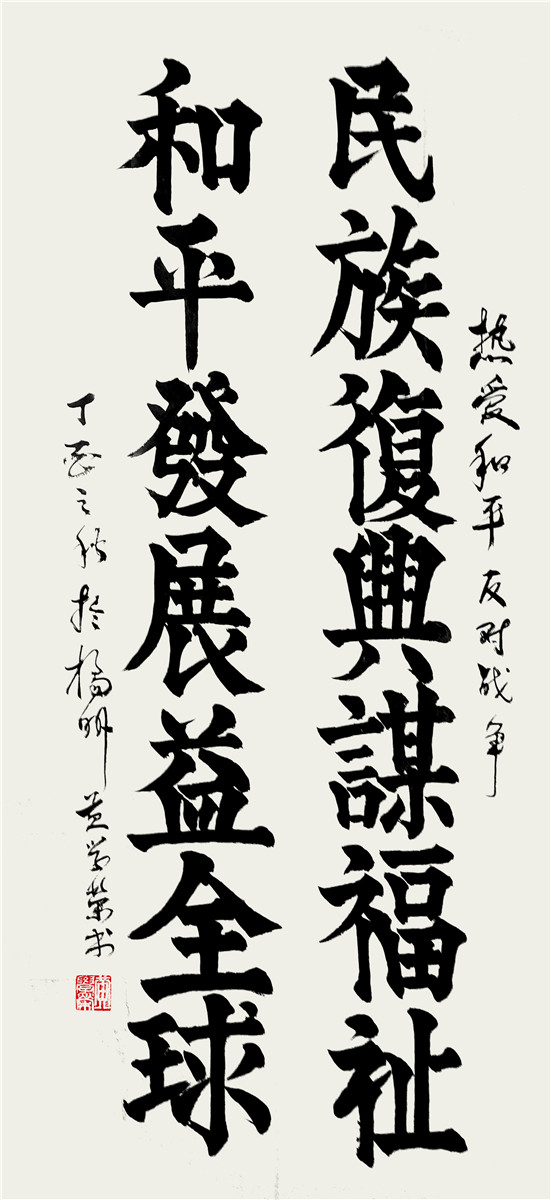 热爱和平反对战争
民族復興謀福祉
和平發展益全球
丁酉之秋於橘明黄学荣书